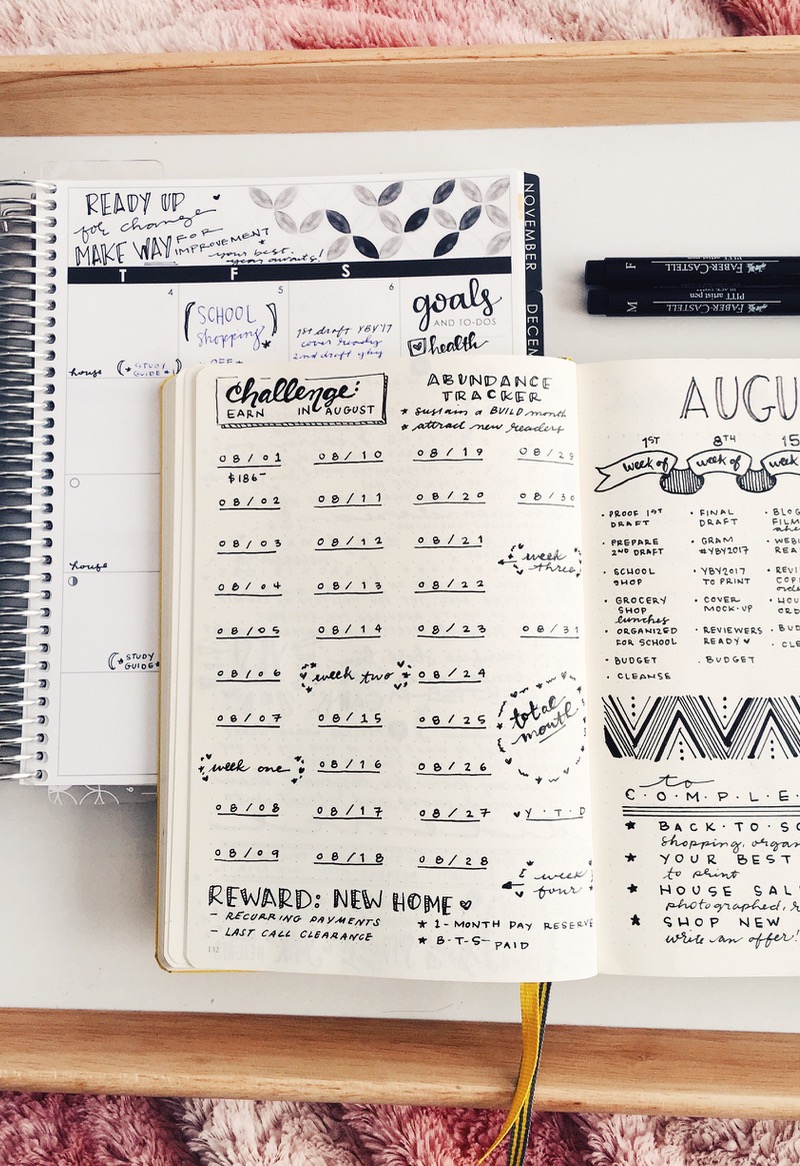 READY UP
for change
MAKE WAY FOR
IMPROVEMENT
your best
year awaits!
T F S
4 5 6
SCHOOL
shopping
1st draft YBY'17
cover ready
2nd draft yby
goals
AND TO-DOS
health
house
STUDY
GUIDE
house
STUDY
GUIDE
NOVEMBER
DECEM
F FABER-CASTELL
PITT artist pen
M FABER-CASTELL
PITT artist pen
challenge:
EARN IN AUGUST
ABUNDANCE
TRACKER
* sustain a BUILD month
* attract new readers
08/01
$186-
08/02
08/03
08/04
08/05
08/06
08/07
week one
08/08
08/09
08/10
08/11
08/12
08/13
08/14
week two
08/15
08/16
08/17
08/18
08/19
08/20
08/21
08/22
08/23
08/24
08/25
08/26
08/27
08/28
08/29
08/30
week
three
08/31
total
month
Y.T.D
week
four
REWARD: NEW HOME
- RECURRING PAYMENTS
- LAST CALL CLEARANCE
* 1-MONTH DAY RESERVE
* B-T-S- PAID
132
AUGU
1ST
week of
8TH
week of
15
week
• PROOF 1ST
DRAFT
• PREPARE
2ND DRAFT
• SCHOOL
SHOP
• GROCERY
SHOP
lunches
• ORGANIZED
FOR SCHOOL
• BUDGET
• CLEANSE
• FINAL
DRAFT
• GRAM
#YBY2017
• YBY2017
TO PRINT
• COVER
MOCK-UP
• REVIEWERS
READY
• BUDGET
• BLOG
FILM
ahe
• WEBI
REA
• REVI
COPI
orde
• HOU
ORD
• BUD
• CLE
to
C.O.M.P.L.E
★ BACK-TO-SC
shopping, organ
★ YOUR BEST
to print
★ HOUSE SAL
photographed, r
★ SHOP NEW
write an offer!